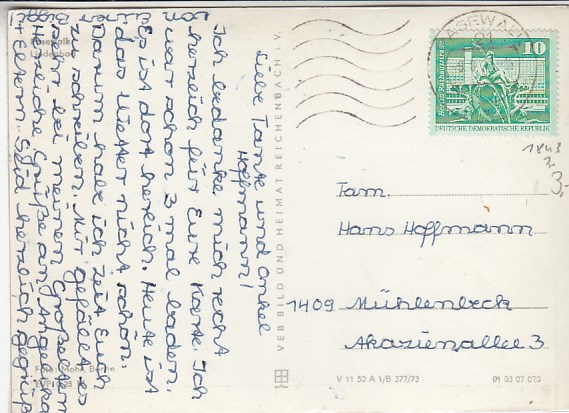 Liebe Tante und Onkel
Hoffmann!
Ich bedanke mich recht
herzlich für Eure Karte. Ich
war schon 3 mal baden.
Es ist dort herrlich. Heute ist
das Wetter nicht schön
Darum habe ich Zeit Euch
zu schreiben. Mir gefällt es
bei meinen Großeltern
Herzliche Grüße an Angelika
Eltern. Seid herzlich gegrüß
Pasewalk
Foto: Mohr, Berlin
VEB BILD UND HEIMAT REICHENBACH i. V.
PASEWALK
10
DEUTSCHE DEMOKRATISCHE REPUBLIK
1843
3,-
Fam.
Hans Hoffmann
1409 Mühlenbeck
Akazienallee 3
V 11 50 A 1/B 377/73
01 03 07 020